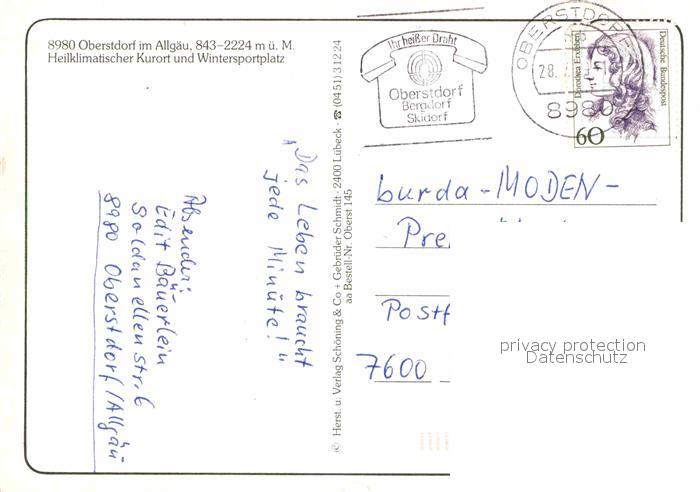 8980 Oberstdorf im Allgäu, 843–2224 m ü. M.
Heilklimatischer Kurort und Wintersportplatz
Ihr heißer Draht
Oberstdorf
Bergdorf
Skidorf
OBERSTDORF
28.
8980
Dorothea Erxleben
Deutsche Bundespost
60
„Das Leben braucht
jede Minute!"
Absender:
Edit Bäuerlein
Soldanellenstr. 6
8980 Oberstdorf/Allgäu
© Herst. u. Verlag Schöning & Co + Gebrüder Schmidt · 2400 Lübeck · ☎ (04 51) 3 12 24
aa Bestell-Nr. Oberst 145
burda-MODEN-
Pre
Postf
7600
privacy protection
Datenschutz